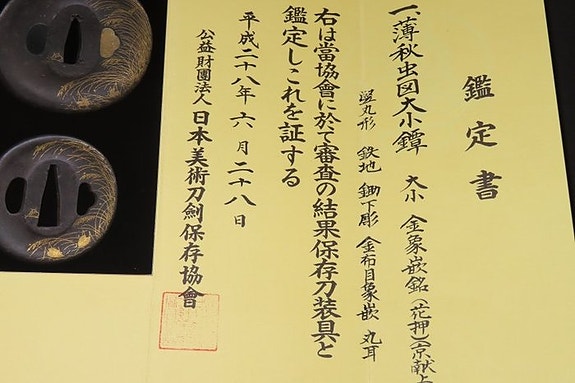 鑑定書
一、薄秋虫図大小鐔 大小 金象嵌銘(花押)(京献上
竪丸形 鉄地 鋤下彫 金布目象嵌 丸耳
右は當協會に於て審査の結果保存刀装具と
鑑定しこれを証する
平成二十八年六月二十八日
公益財團法人 日本美術刀劍保存協會